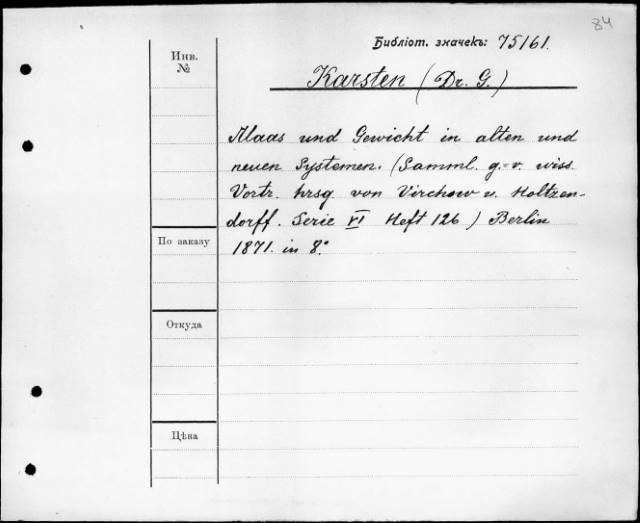 84
Библіот. значекъ: 75161.
Инв.
№
Karsten (Dr. G.)
Maas und Gewicht in alten und
neuen Systemen. (Samml. g.-v. wiss.
Vortr. hrsg. von Virchow u. Holtzen-
dorff. Serie VI Heft 126) Berlin
1871. in 8°.
По заказу
Откуда
Цѣна